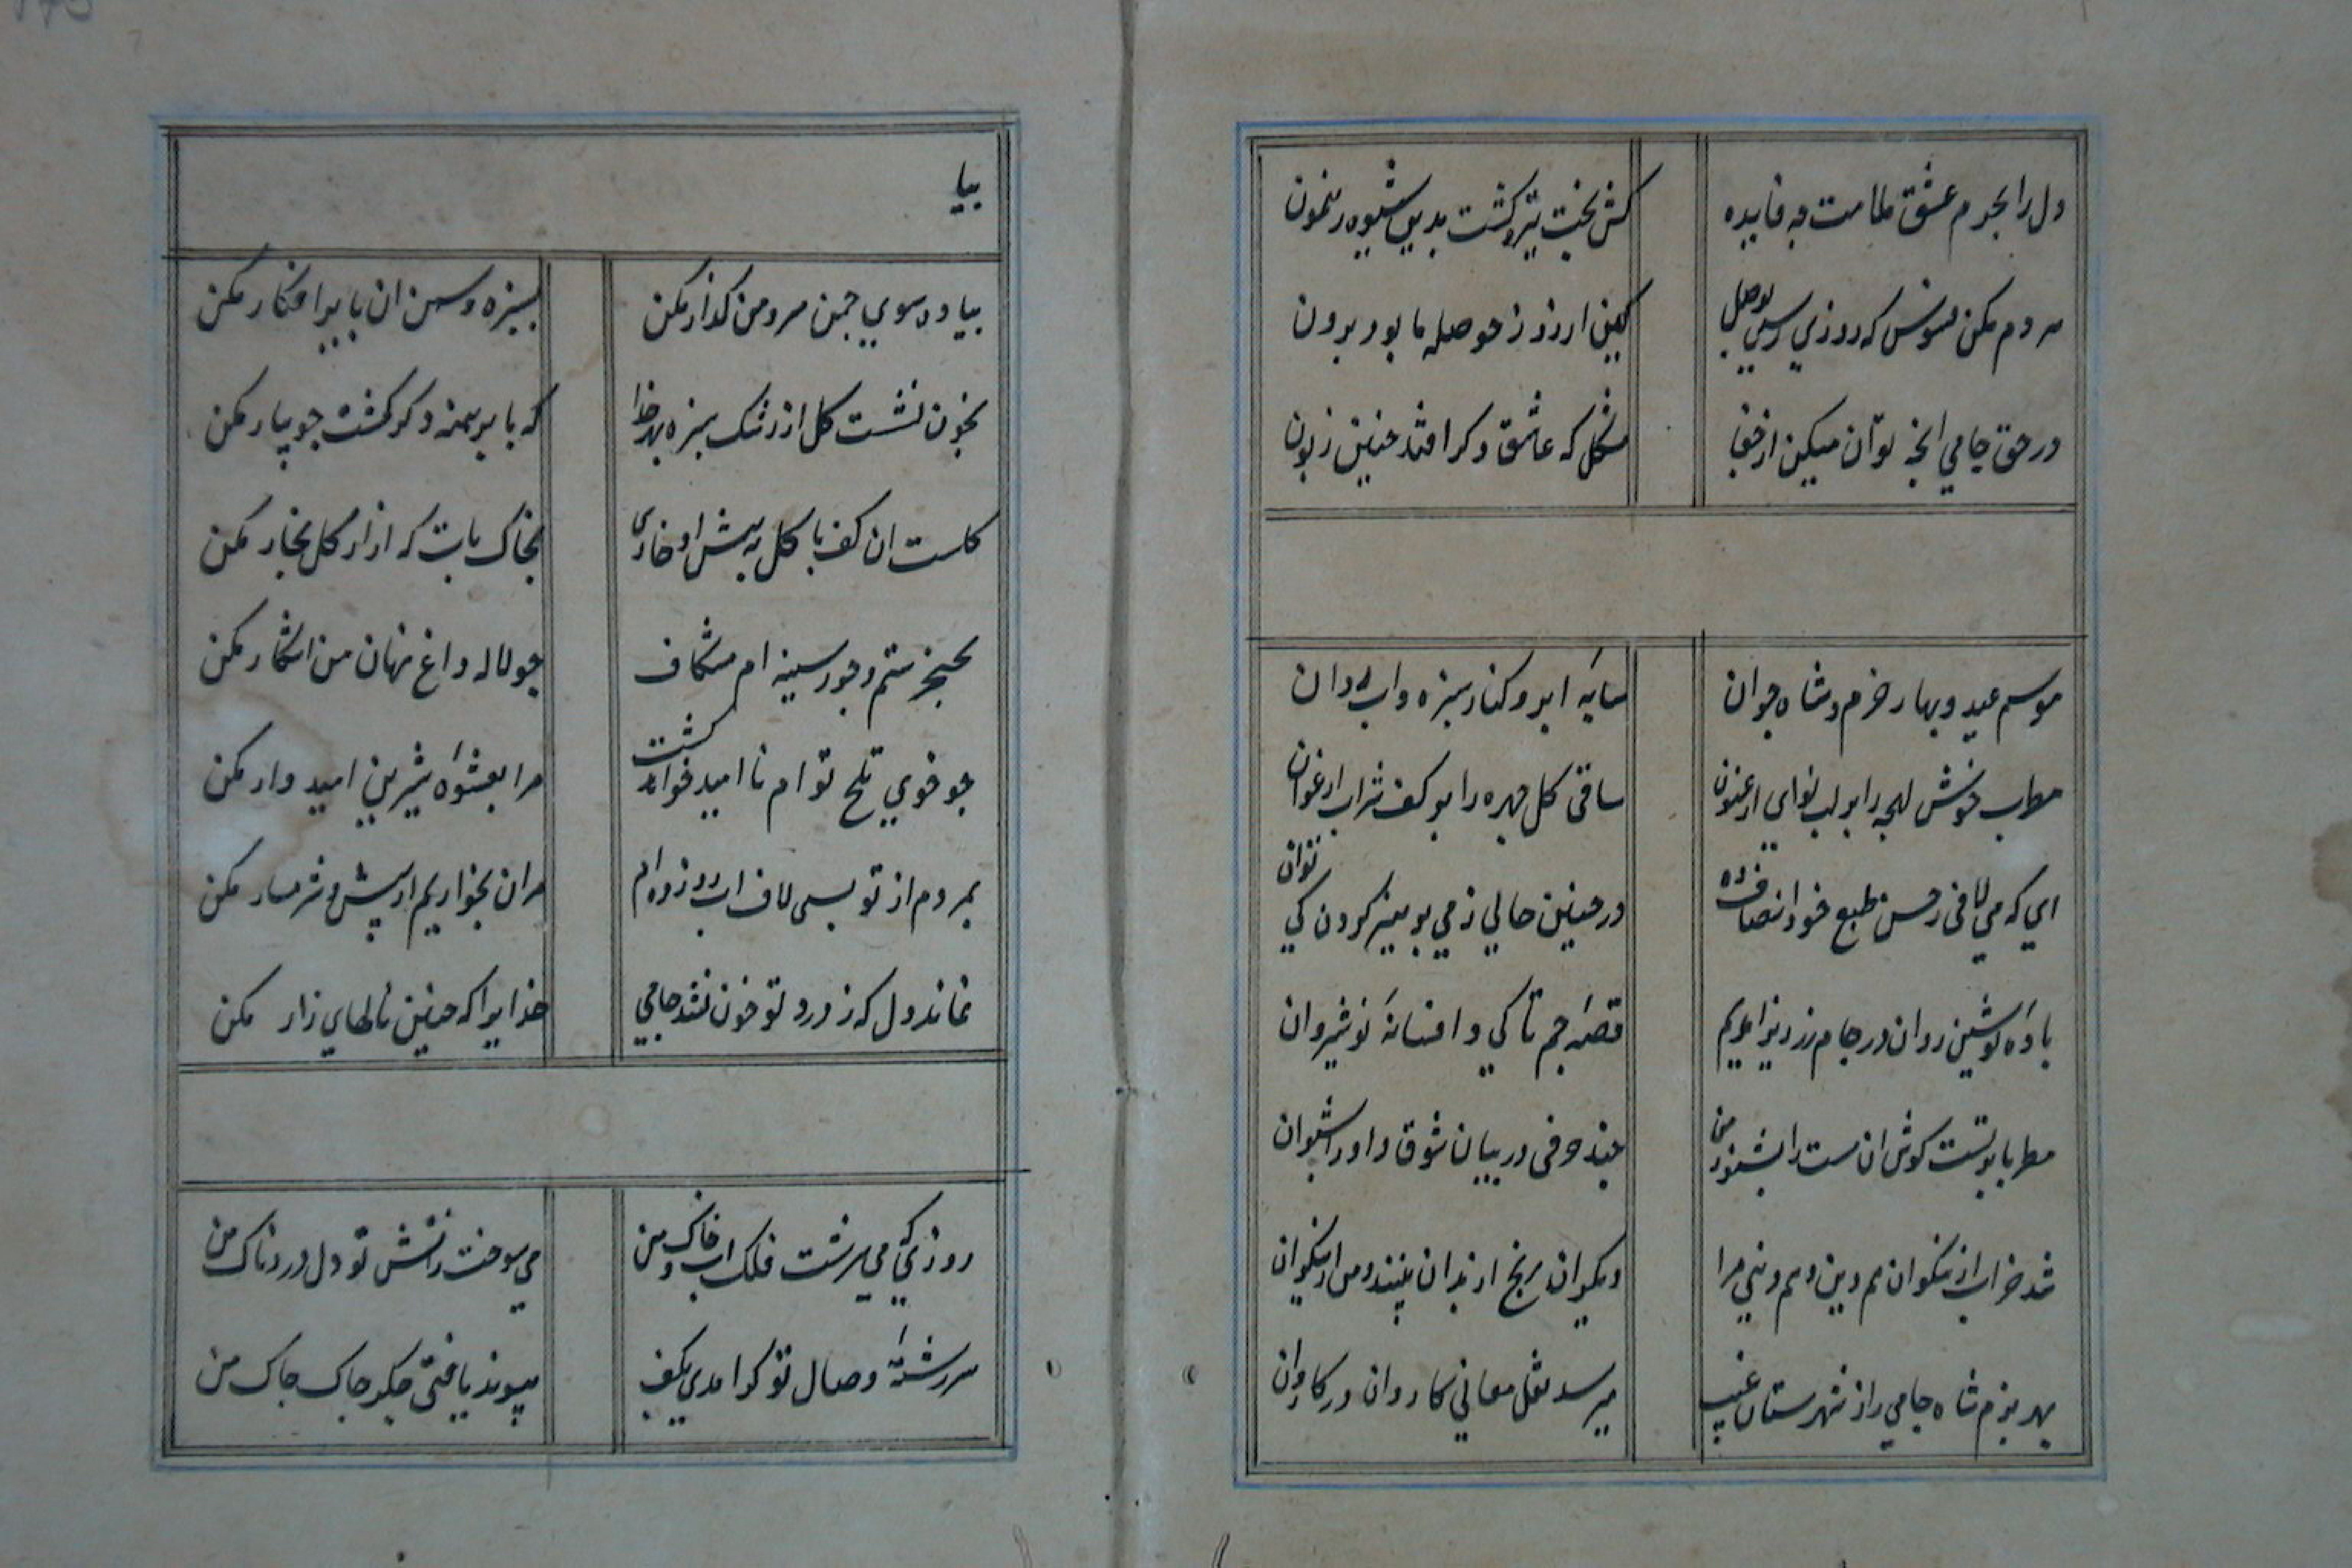 دل را بجرم عشق ملامت چه فایده
کش بخت تیره گشت بدین شیوه رهنمون
مردم مکن فسوس که روزی رسی بوصل
کین ارزو ز حوصله ما بود برون
در حق جامی انچه توان میکن از جفا
مشکل که عاشق دکر افتد چنین زبون
موسم عید و بهار خرم و شاه جوان
سایه ابر و کنار سبزه و اب روان
مطرب خوش لهجه را بر لب نوای ارغنون
ساقی کل چهره را بر کف شراب ارغوان
ای که می لافی ز حسن طبع خود انصاف ده
در چنین حالی ز می پرهیز کردن کی توان
باده نوشین روان در جام زر ریز ای ندیم
قصه جم تا کی و افسانه نوشیروان
مطربا بر تست کوش ان مست را بشنو ز من
چند حرفی در بیان شوق داود اشنوان
شد خراب از نیکوان هم دین و هم دنیی مرا
دیکران رنج از بدان بینند و من از نیکوان
بهر بزم شاه جامی را ز شهرستان غیب
میرسد نقل معانی کاروان در کاروان
بیا
بیا و سوی چمن سرو من کذار مکن
بسبزه و سمن ان پا برا فکار مکن
بخون نشست کل از رشک سبزه بهر خدا
که پا برهنه دکر کشت جویبار مکن
کلست ان کف پا کل به پیش او خاری
بخاک پات که ازار کل بخار مکن
بخنجر ستم و جور سینه ام مشکاف
چو لاله داغ نهان من اشکار مکن
چو خوی تلخ تو ام نا امید خواهد کشت
مرا بعشوه شیرین امیدوار مکن
بمردم از تو بسی لاف اب رو زده ام
مران بخواریم از پیش و شرمسار مکن
نماند دل که ز درد تو خون نشد جامی
خدایرا که چنین نالهای زار مکن
روزی که می سرشت فلک اب و خاک من
می سوخت ز اتش تو دل دردناک من
سررشته وصال تو کر امدی بکف
پیوند یافتی جکر چاک چاک من